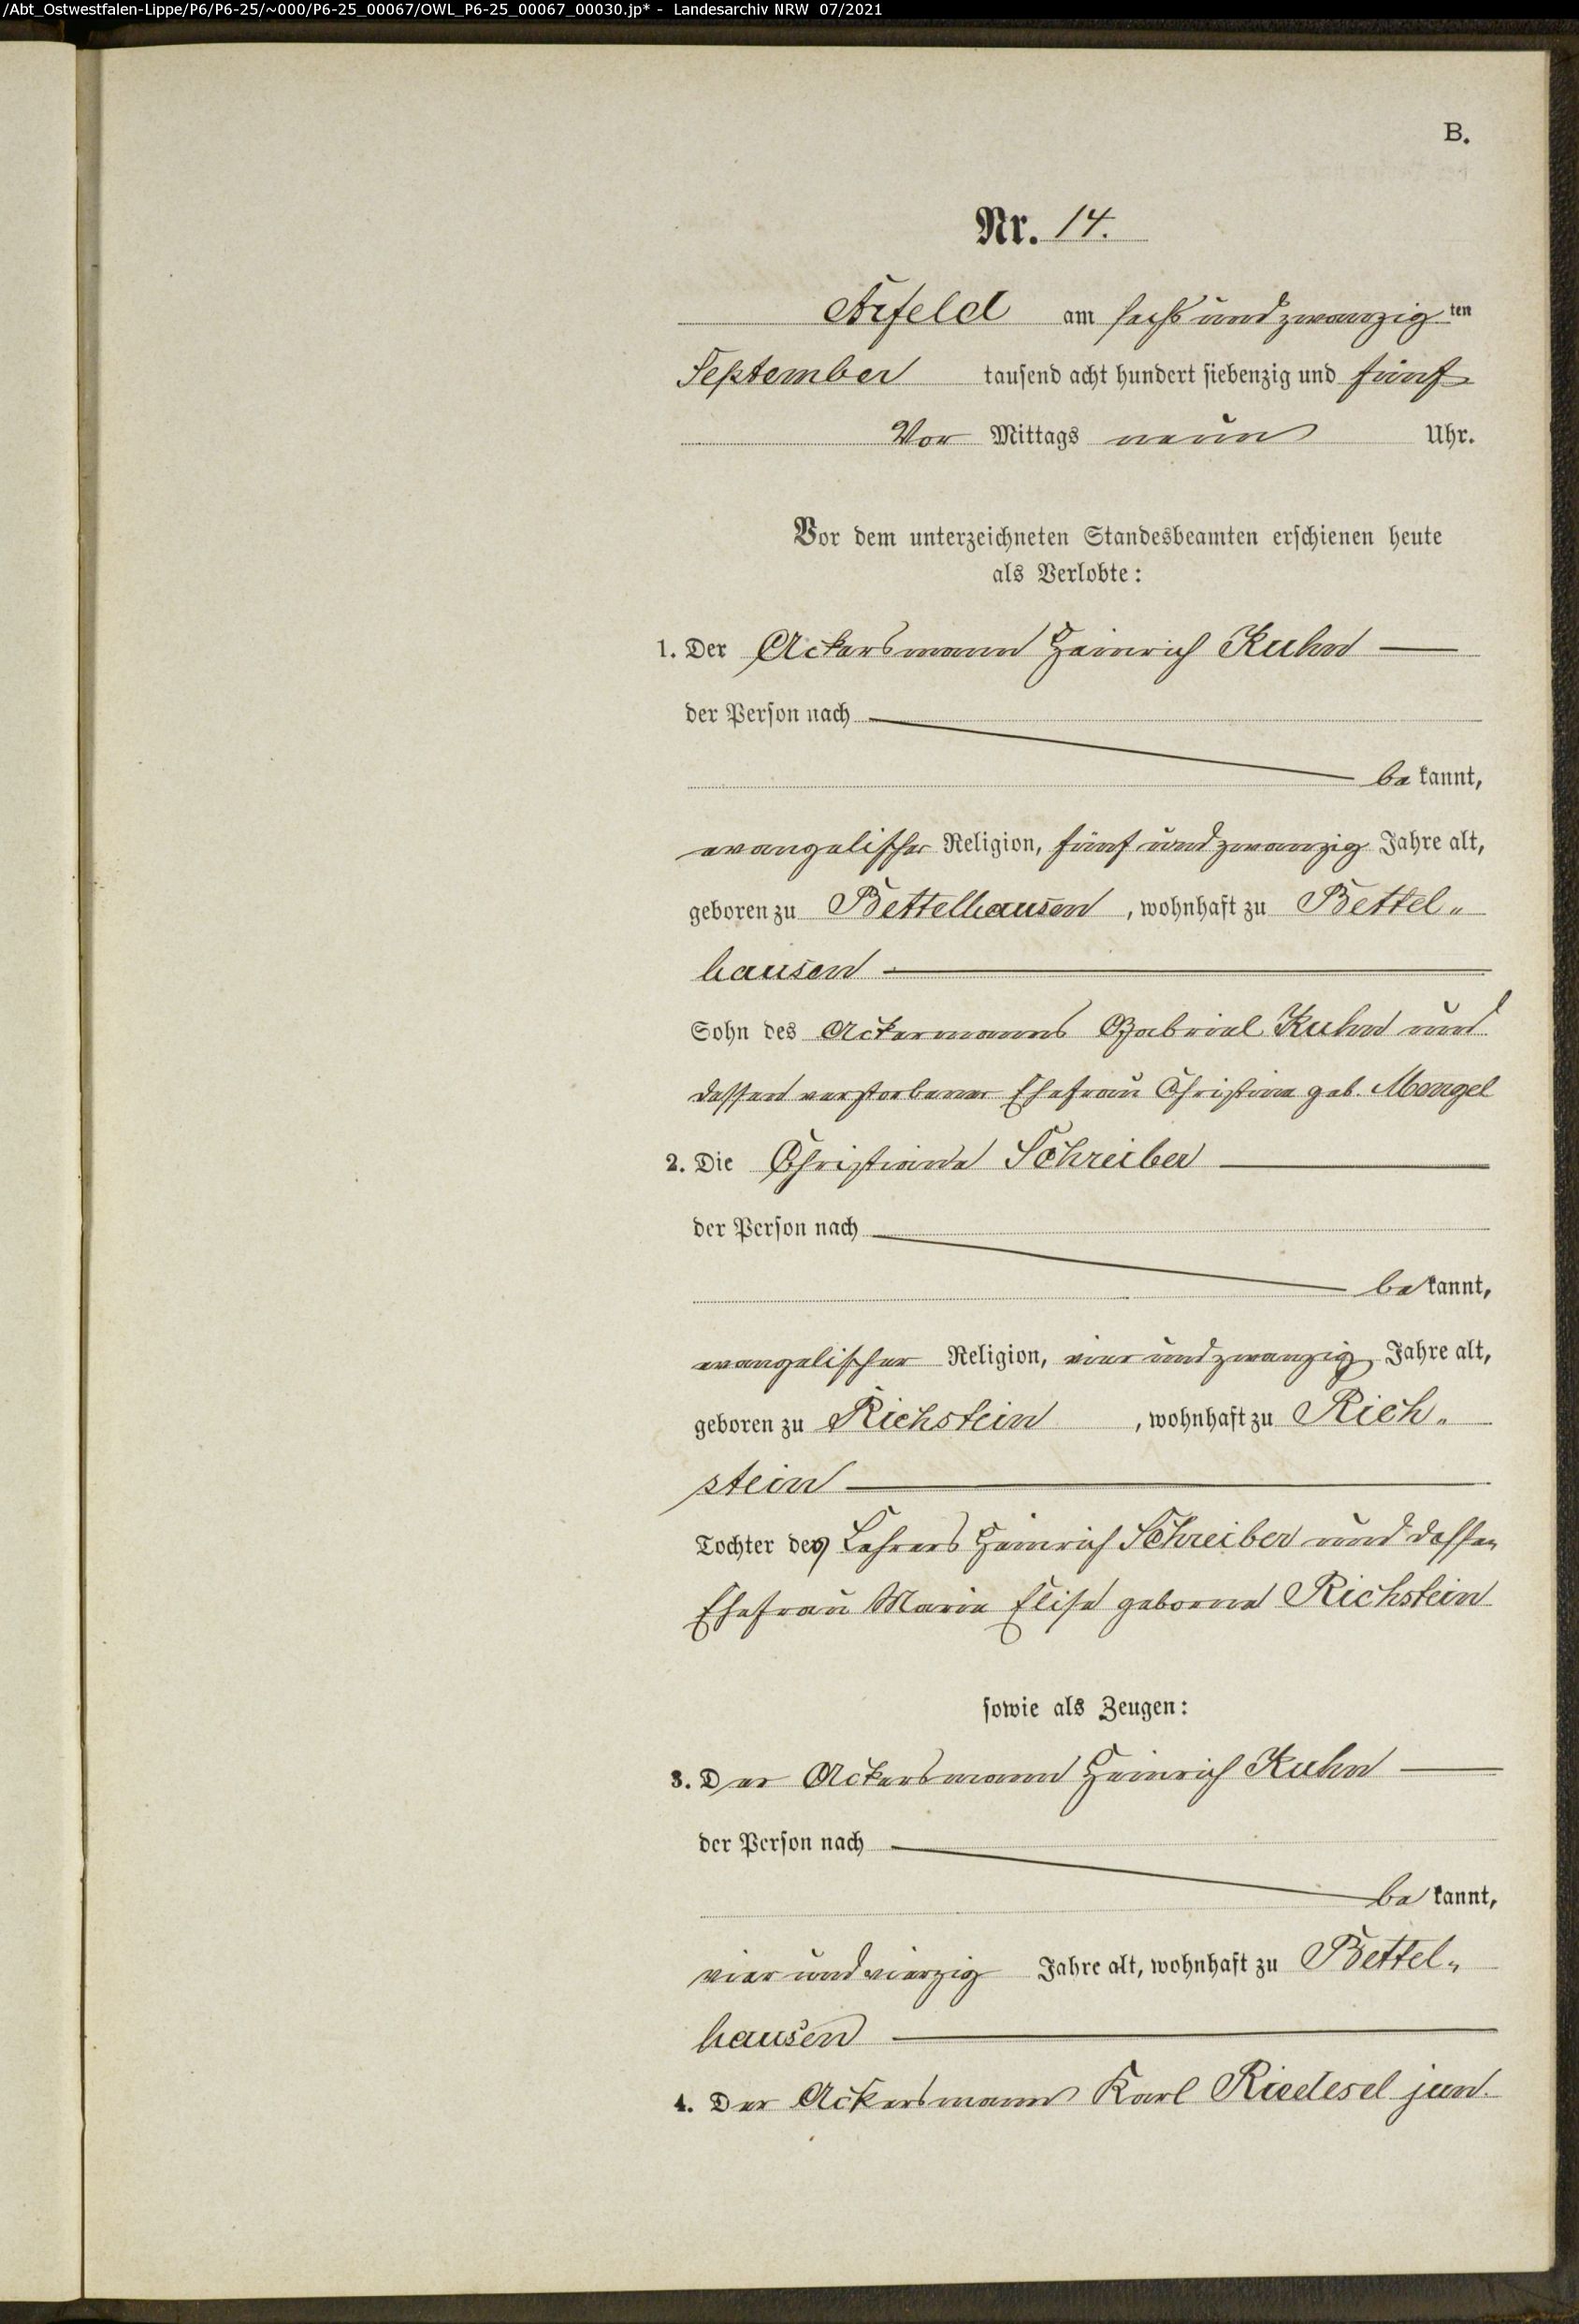 /Abt_Ostwestfalen-Lippe/P6/P6-25/~000/P6-25_00067/OWL_P6-25_00067_00030.jp* - Landesarchiv NRW 07/2021
B.
Nr. 14.
Arfeld am sechs und zwanzig ten
September tausend acht hundert siebenzig und fünf
Vor Mittags neun Uhr.
Vor dem unterzeichneten Standesbeamten erschienen heute
als Verlobte:
1. Der Ackersmann Heinrich Kuhn
der Person nach
be kannt,
evangelischer Religion, fünf und zwanzig Jahre alt,
geboren zu Bettelhausen, wohnhaft zu Bettel„
hausen
Sohn des Ackermanns Gabriel Kuhn und
dessen verstorbener Ehefrau Christine geb. Mengel
2. Die Christiane Schreiber
der Person nach
be kannt,
evangelischer Religion, vier und zwanzig Jahre alt,
geboren zu Richstein, wohnhaft zu Rich„
stein
Tochter des Lehrers Heinrich Schreiber und dessen
Ehefrau Marie Elise geborne Richstein
sowie als Zeugen:
3. Der Ackersmann Heinrich Kuhn
der Person nach
be kannt,
vier und vierzig Jahre alt, wohnhaft zu Bettel„
hausen
4. Der Ackersmann Karl Riedesel jun.